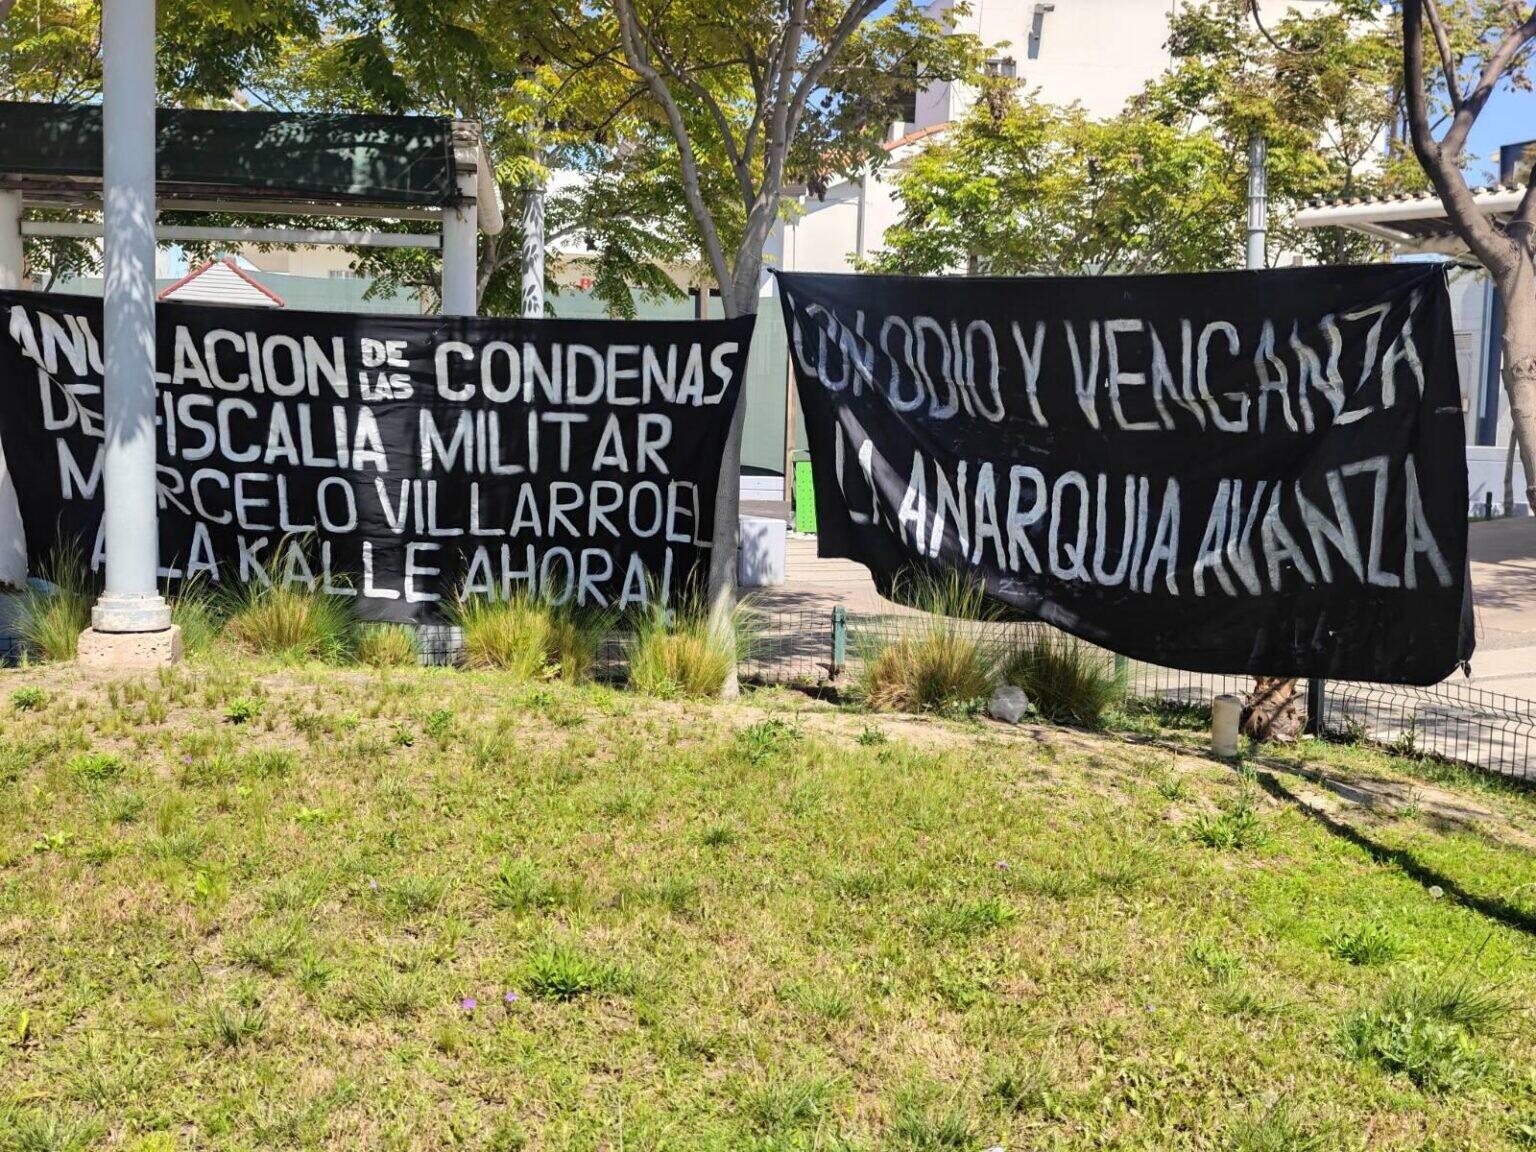 ANULACION DE LAS CONDENAS
DE FISCALIA MILITAR
MARCELO VILLARROEL
A LA KALLE AHORA!
CON ODIO Y VENGANZA
LA ANARQUIA AVANZA